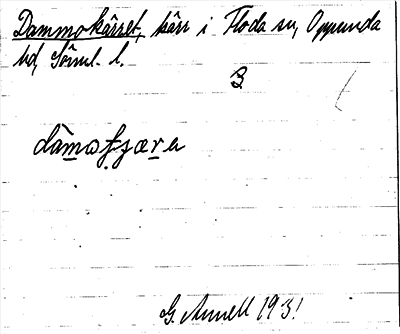 Dammokärret, kärr i Floda sn, Oppunda
hd, Söml. l.
3
dämoʈʂæra
G. Annell 1931